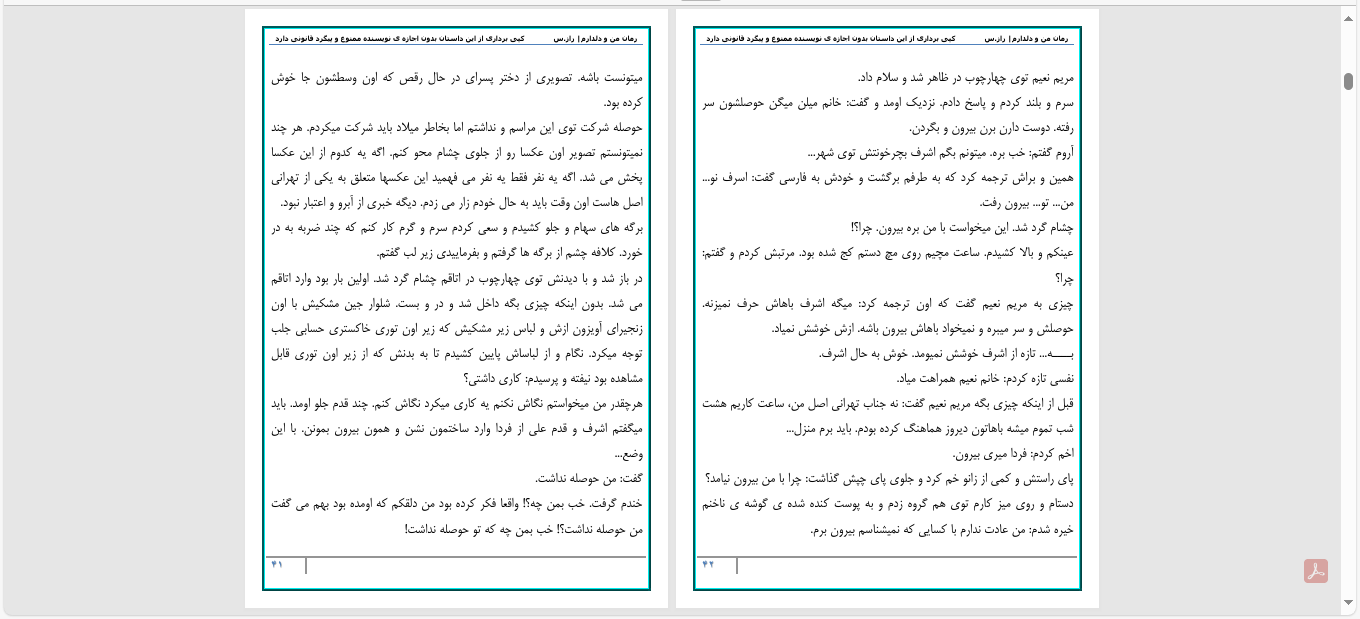 رمان من و دلدارم| راز.س کپی برداری از این داستان بدون اجازه ی نویسنده ممنوع و پیگرد قانونی دارد
میتونست باشه. تصویری از دختر پسرای در حال رقص که اون وسطشون جا خوش
کرده بود.
حوصله شرکت توی این مراسم و نداشتم اما بخاطر میلاد باید شرکت میکردم. هر چند
نمیتونستم تصویر اون عکسا رو از جلوی چشام محو کنم. اگه یه کدوم از این عکسا
پخش می شد. اگه یه نفر فقط یه نفر می فهمید این عکسها متعلق به یکی از تهرانی
اصل هاست اون وقت باید به حال خودم زار می زدم. دیگه خبری از آبرو و اعتبار نبود.
برگه های سهام و جلو کشیدم و سعی کردم سرم و گرم کار کنم که چند ضربه به در
خورد. کلافه چشم از برگه ها گرفتم و بفرماییدی زیر لب گفتم.
در باز شد و با دیدنش توی چهارچوب در اتاقم چشام گرد شد. اولین بار بود وارد اتاقم
می شد. بدون اینکه چیزی بگه داخل شد و در و بست. شلوار جین مشکیش با اون
زنجیرای آویزون ازش و لباس زیر مشکیش که زیر اون توری خاکستری حسابی جلب
توجه میکرد. نگام و از لباساش پایین کشیدم تا به بدنش که از زیر اون توری قابل
مشاهده بود نیفته و پرسیدم: کاری داشتی؟
هرچقدر من میخواستم نگاش نکنم یه کاری میکرد نگاش کنم. چند قدم جلو اومد. باید
میگفتم اشرف و قدم علی از فردا وارد ساختمون نشن و همون بیرون بمونن. با این
وضع...
گفت: من حوصله نداشت.
خندم گرفت. خب بمن چه؟! واقعا فکر کرده بود من دلقکم که اومده بود بهم می گفت
من حوصله نداشت؟! خب بمن چه که تو حوصله نداشت!
۴۱
رمان من و دلدارم| راز.س کپی برداری از این داستان بدون اجازه ی نویسنده ممنوع و پیگرد قانونی دارد
مریم نعیم توی چهارچوب در ظاهر شد و سلام داد.
سرم و بلند کردم و پاسخ دادم. نزدیک اومد و گفت: خانم میلن میگن حوصلشون سر
رفته. دوست دارن برن بیرون و بگردن.
آروم گفتم: خب بره. میتونم بگم اشرف بچرخونتش توی شهر...
همین و براش ترجمه کرد که به طرفم برگشت و خودش به فارسی گفت: اسرف نو...
من... تو... بیرون رفت.
چشام گرد شد. این میخواست با من بره بیرون. چرا؟!
عینکم و بالا کشیدم. ساعت مچیم روی مچ دستم کج شده بود. مرتبش کردم و گفتم:
چرا؟
چیزی به مریم نعیم گفت که اون ترجمه کرد: میگه اشرف باهاش حرف نمیزنه.
حوصلش و سر میبره و نمیخواد باهاش بیرون باشه. ازش خوشش نمیاد.
بــــه... تازه از اشرف خوشش نمیومد. خوش به حال اشرف.
نفسی تازه کردم: خانم نعیم همراهت میاد.
قبل از اینکه چیزی بگه مریم نعیم گفت: نه جناب تهرانی اصل من، ساعت کاریم هشت
شب تموم میشه باهاتون دیروز هماهنگ کرده بودم. باید برم منزل...
اخم کردم: فردا میری بیرون.
پای راستش و کمی از زانو خم کرد و جلوی پای چپش گذاشت: چرا با من بیرون نیامد؟
دستام و روی میز کارم توی هم گروه زدم و به پوست کنده شده ی گوشه ی ناخنم
خیره شدم: من عادت ندارم با کسایی که نمیشناسم بیرون برم.
۴۲